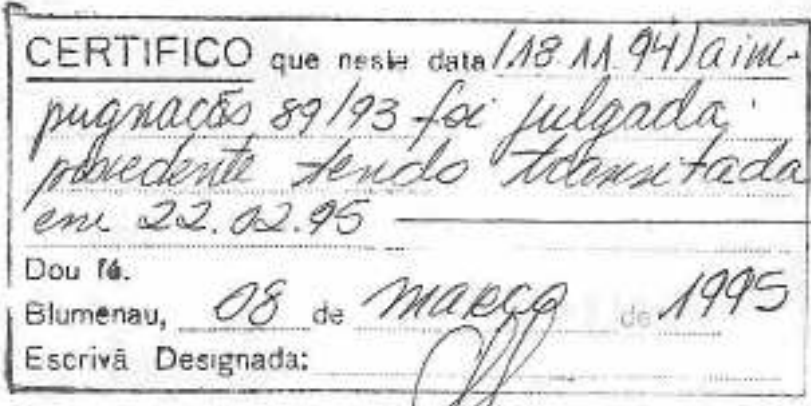 CERTIFICO que neste data (18.11.94) a im-
pugnação 89/93 foi julgada
procedente tendo transitada
em 22.02.95
Dou fé.
Blumenau, 08 de março de 1995
Escrivã Designada: